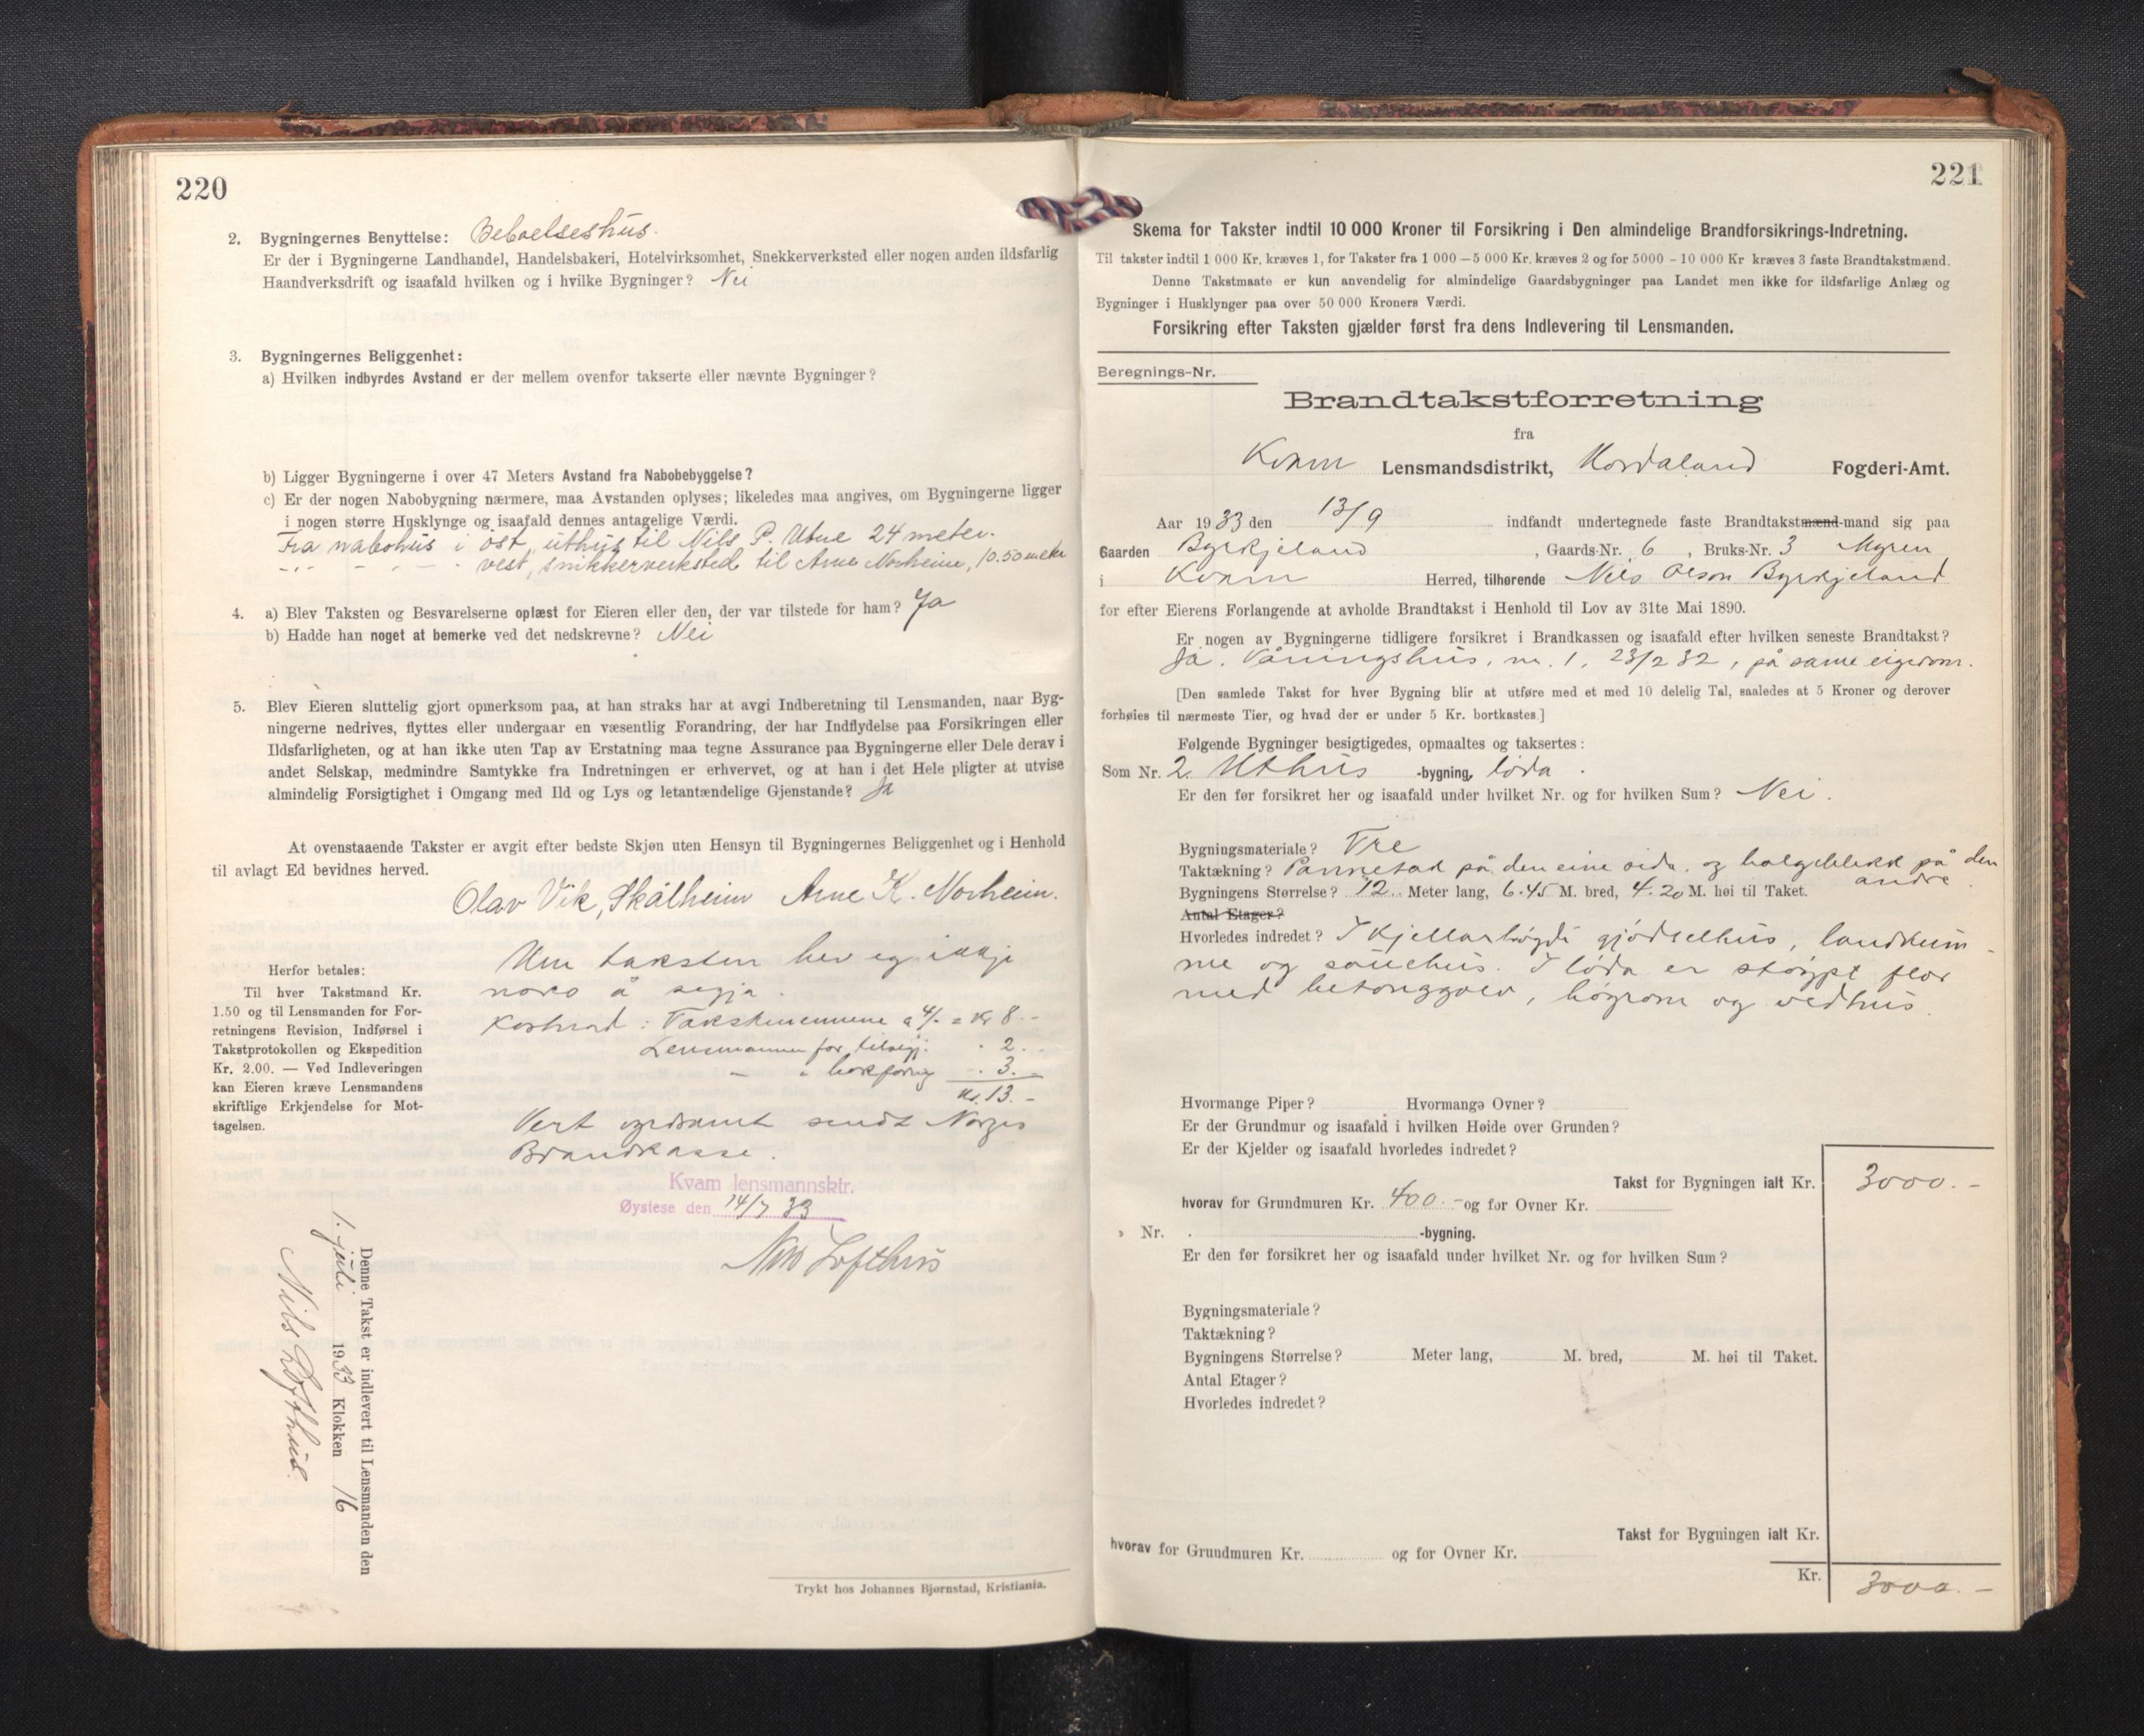 220
2. Bygningernes Benyttelse: Beboelseshus.
Er der i Bygningerne Landhandel, Handelsbakeri, Hotelvirksomhet, Snekkerverksted eller nogen anden ildsfarlig
Haandverksdrift og isaafald hvilken og i hvilke Bygninger? Nei
3. Bygningernes Beliggenhet:
a) Hvilken indbyrdes Avstand er der mellem ovenfor takserte eller nævnte Bygninger?
b) Ligger Bygningerne i over 47 Meters Avstand fra Nabobebyggelse?
c) Er der nogen Nabobygning nærmere, maa Avstanden oplyses; likeledes maa angives, om Bygningerne ligger
i nogen større Husklynge og isaafald dennes antagelige Værdi.
Fra nabohus i øst, uthus til Nils P. Utne 24 meter.
-"- - " - vest, snikkerverksted til Arne Norheim, 10.50 meter
4. a) Blev Taksten og Besvarelserne oplæst for Eieren eller den, der var tilstede for ham? Ja
b) Hadde han noget at bemerke ved det nedskrevne? Nei
5. Blev Eieren sluttelig gjort opmerksom paa, at han straks har at avgi Indberetning til Lensmanden, naar Byg-
ningerne nedrives, flyttes eller undergaar en væsentlig Forandring, der har Indflydelse paa Forsikringen eller
Ildsfarligheten, og at han ikke uten Tap av Erstatning maa tegne Assurance paa Bygningerne eller Dele derav i
andet Selskap, medmindre Samtykke fra Indretningen er erhvervet, og at han i det Hele pligter at utvise
almindelig Forsigtighet i Omgang med Ild og Lys og letantændelige Gjenstande? Ja
At ovenstaaende Takster er avgit efter bedste Skjøn uten Hensyn til Bygningernes Beliggenhet og i Henhold
til avlagt Ed bevidnes herved.
Olav Vik, Skålheim Arne K. Norheim.
Um taksten hev eg ikkje
noko å segja.
Kostnad: Takstmennene a 4/- = Kr 8.-
Lensmannen for tilseg: " 2.-
- " bokføring " 3.-
Kr. 13.-
Vert uprdsamt sendt Norges
Brandkasse.
Kvam lensmannsktr.
Øystese den 14/7 33
Nils Lofthus
Herfor betales:
Til hver Takstmand Kr.
1.50 og til Lensmanden for For-
retningens Revision, Indførsel i
Takstprotokollen og Ekspedition
Kr. 2.00. — Ved Indleveringen
kan Eieren kræve Lensmandens
skriftlige Erkjendelse for Mot-
tagelsen.
Denne Takst er indlevert til Lensmanden den
1. juli 1933 Klokken 16
Nils Lofthus.
Trykt hos Johannes Bjørnstad, Kristiania.
221
Skema for Takster indtil 10 000 Kroner til Forsikring i Den almindelige Brandforsikrings-Indretning.
Til takster indtil 1 000 Kr. kræves 1, for Takster fra 1 000 — 5 000 Kr. kræves 2 og for 5000 - 10 000 Kr kræves 3 faste Brandtakstmænd.
Denne Takstmaate er kun anvendelig for almindelige Gaardsbygninger paa Landet men ikke for ildsfarlige Anlæg og
Bygninger i Husklynger paa over 50 000 Kroners Værdi.
Forsikring efter Taksten gjælder først fra dens Indlevering til Lensmanden.
Beregnings-Nr.
Brandtakstforretning
fra
Kvam Lensmandsdistrikt, Hordaland Fogderi-Amt.
Aar 1933 den 13/9 indfandt undertegnede faste Brandtakstmænd-mand sig paa
Gaarden Byrkjeland, Gaards-Nr. 6, Bruks-Nr. 3 Myren
i Kvam Herred, tilhørende Nils Olson Byrkjeland
for efter Eierens Forlangende at avholde Brandtakst i Henhold til Lov av 31te Mai 1890.
Er nogen av Bygningerne tidligere forsikret i Brandkassen og isaafald efter hvilken seneste Brandtakst?
Ja. Våningshus, nr. 1, 23/2 32, på same eigedom.
[Den samlede Takst for hver Bygning blir at utføre med et med 10 delelig Tal, saaledes at 5 Kroner og derover
forhøies til nærmeste Tier, og hvad der er under 5 Kr. bortkastes.]
Følgende Bygninger besigtigedes, opmaaltes og taksertes:
Som Nr. 2. Uthus -bygning, løda.
Er den før forsikret her og isaafald under hvilket Nr. og for hvilken Sum? Nei.
Bygningsmateriale? Tre
Taktækning? Pannetak på den eine sida, og bølgeblekk på den
andre.
Bygningens Størrelse? 12 Meter lang, 6.45 M. bred, 4.20 M. høi til Taket.
Antal Etager?
Hvorledes indredet? I kjellarhøgdi gjødselhus, landkum-
me og sauehus. I løda er støypt flor
med betonggolv, høyrom og vedhus.
Hvormange Piper? Hvormange Ovner?
Er der Grundmur og isaafald i hvilken Høide over Grunden?
Er der Kjelder og isaafald hvorledes indredet?
Takst for Bygningen ialt Kr. 3000.-
hvorav for Grundmuren Kr. 400.- og for Ovner Kr.
» Nr. -bygning.
Er den før forsikret her og isaafald under hvilket Nr. og for hvilken Sum?
Bygningsmateriale?
Taktækning?
Bygningens Størrelse? Meter lang, M. bred, M. høi til Taket.
Antal Etager?
Hvorledes indredet?
Takst for Bygningen ialt Kr.
hvorav for Grundmuren Kr. og for Ovner Kr.
Kr. 3000.-